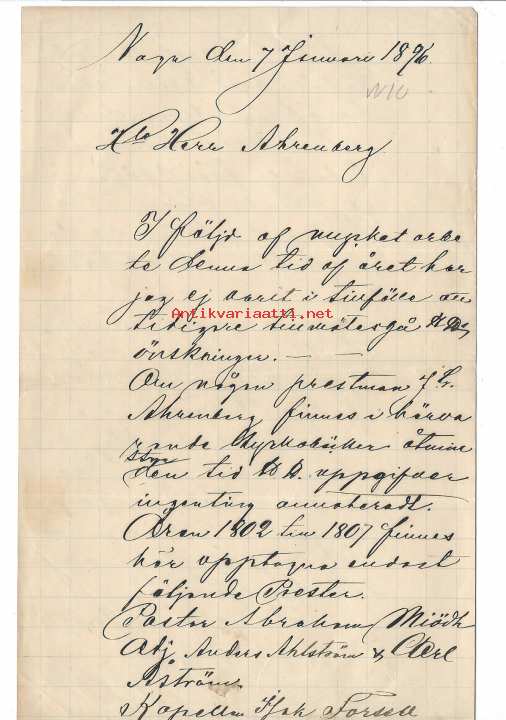 den 7 Januari 1896.
Herr Ahrenberg.
I följd af mycket arbe
te denna tid af året har
jag ej varit i tillfälle att
Antikvariaatti.net
tidigare tillmötesgå
önskningar. — —
Om någon prestman J.
Ahrenberg finnes i härva
rande Kyrkoböcker åtmin
stone
den tid uppgifver
ingenting annoteradt.
Åren 1802 till 1807 finnes
här upptagna endast
följande Prester.
Pastor Abraham Miödh
Adj Anders Ahlström & Carl
Åström
Kapellan Isak Forsell